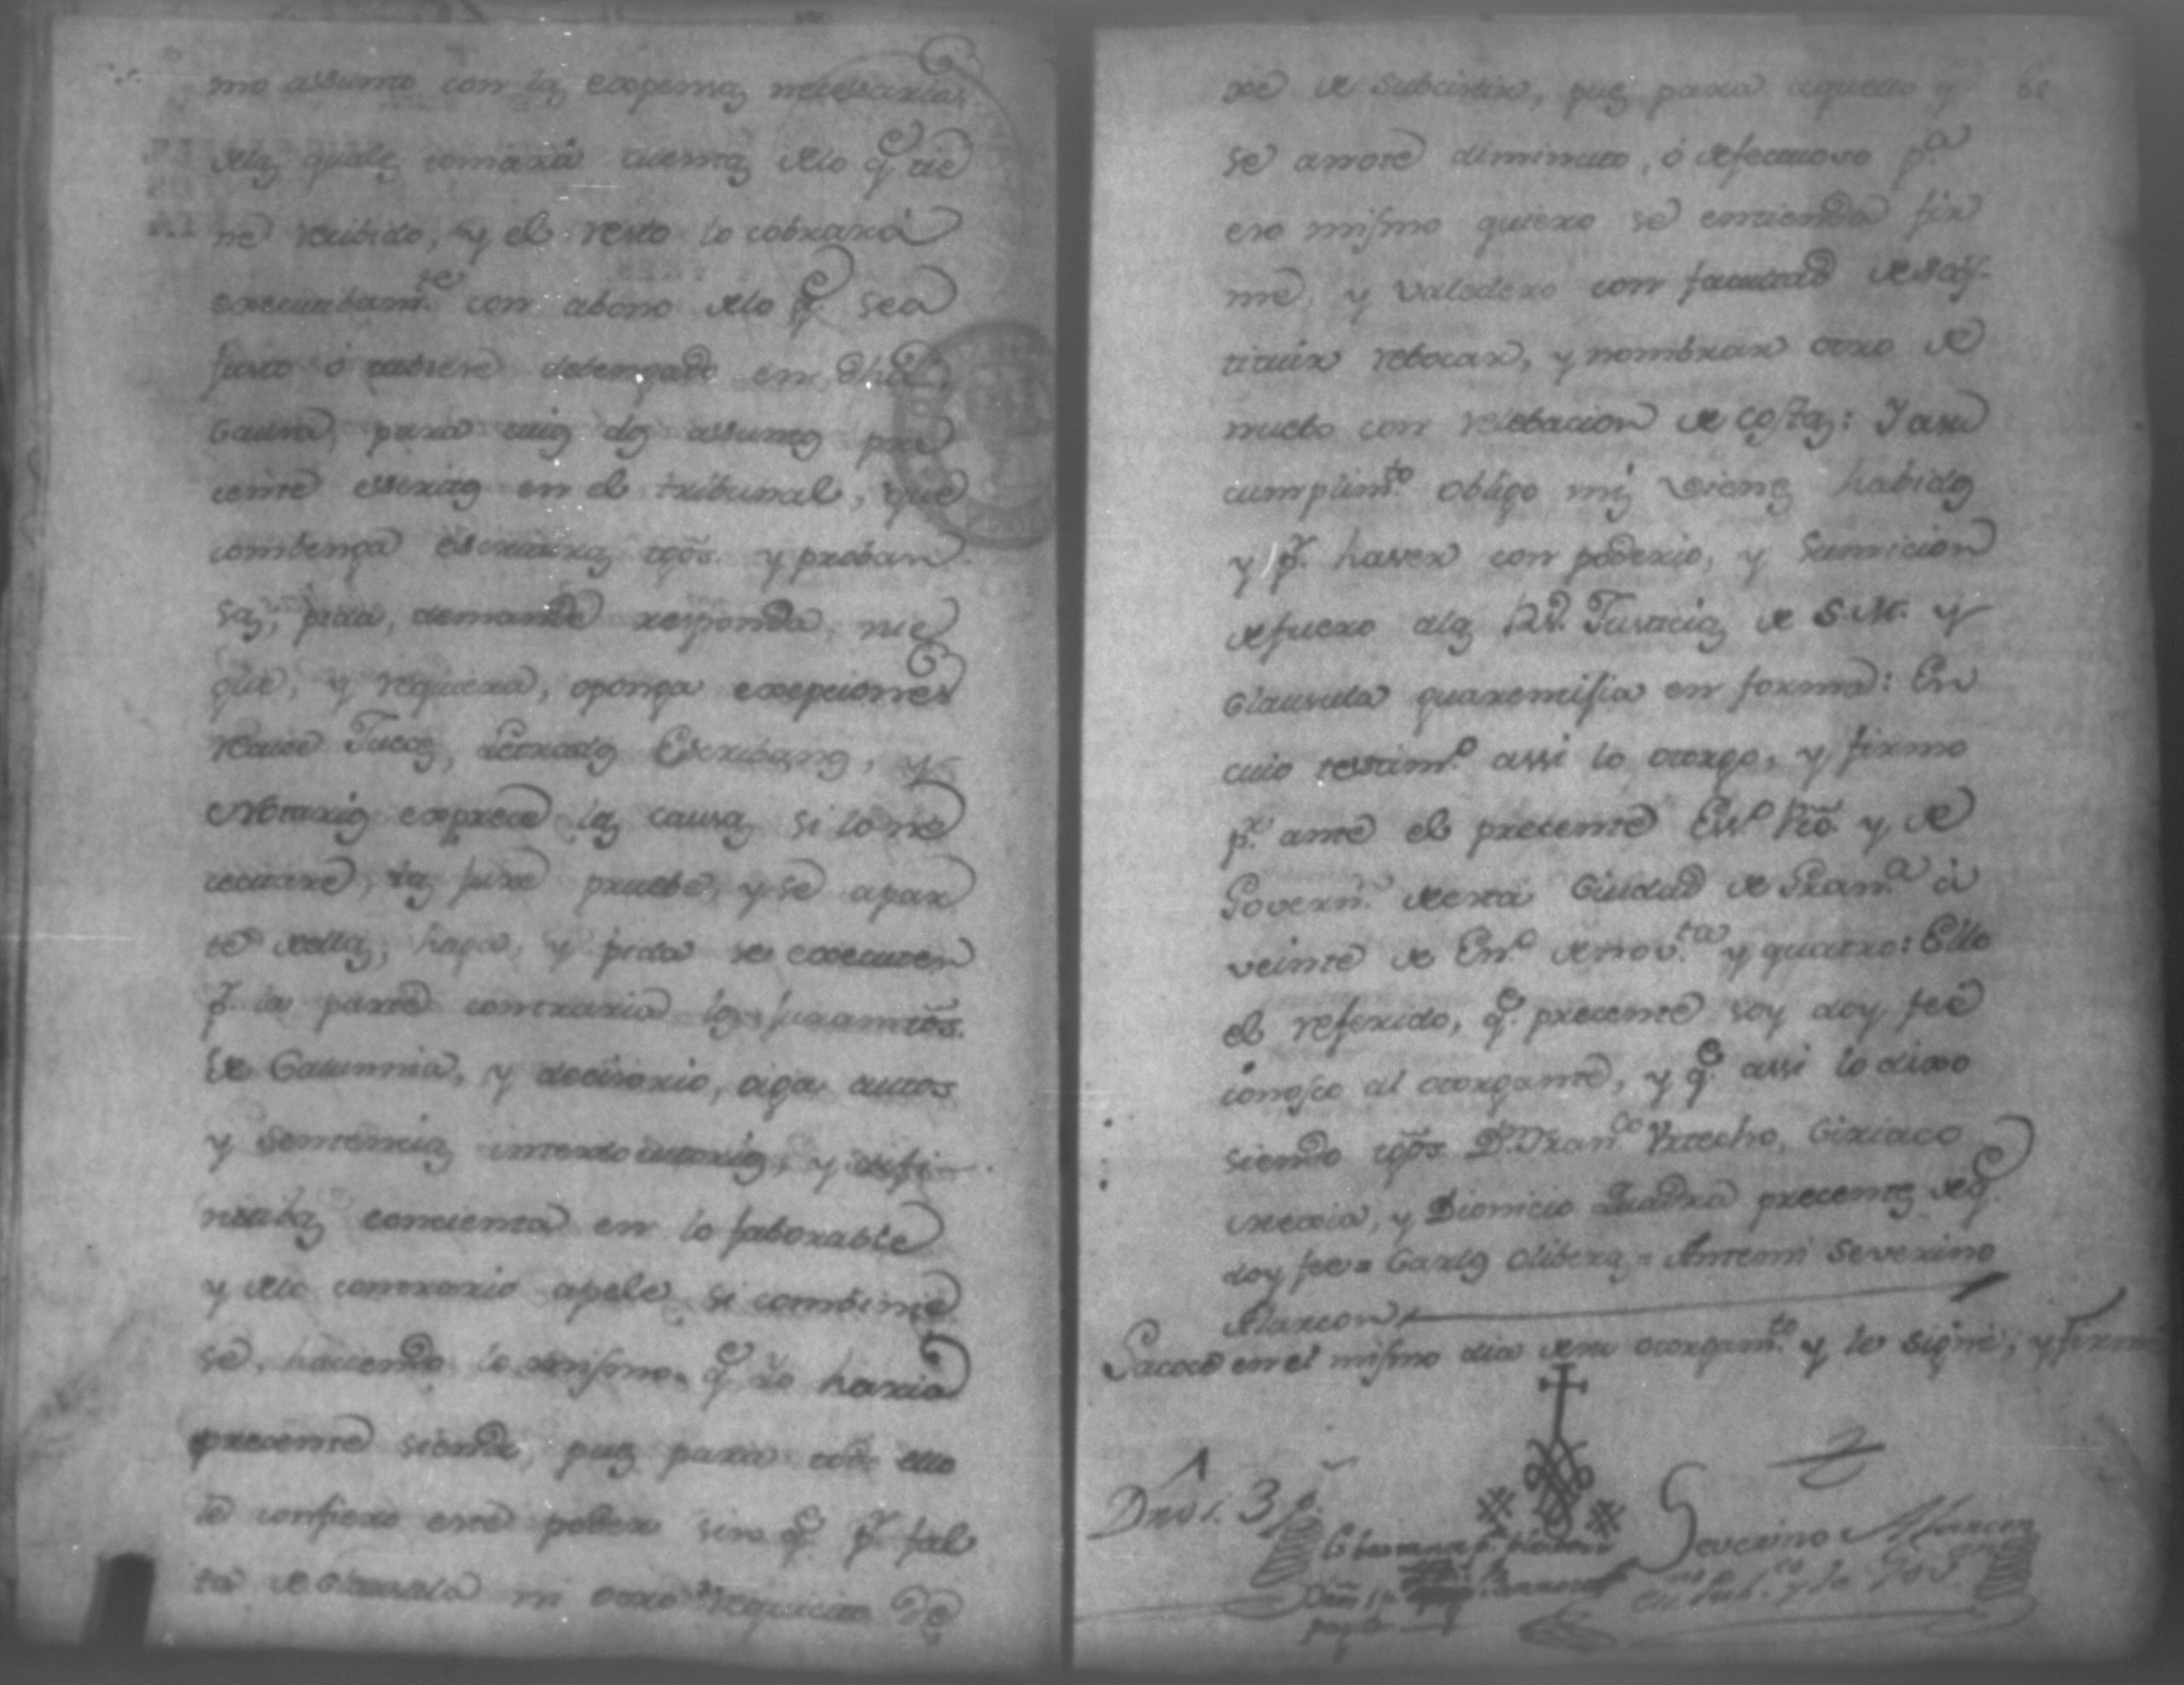 mo assumto con las expensas necessarias
delas quales tomará cuentas delo q.e tie
ne recibido, y el resto lo cobrará
executibam.te con abono delo q.e sea
justo ó tubiere debengado en dha
Causa, para cuios dos assumtos pre
cente escritos en el tribunal, que
combenga escrituras tgõs. y proban
sas, pida, demande responda, nie
gue, y requiera, oponga excepciones
recuse Jueces, Letrados Escribanos, y
Notarios exprece las causas si lo ne
cecitare, las jure pruebe, y se apar
te dellas, haga, y pida se executen
p.r la parte contraria los juramtõs.
de Calumnia, y decisorio, oiga autos
y Sentencias interlocutorias, y difi-
nitibas concienta en lo faborable
y delo contrario apele si combinie
se, haciendo lo mismo q.e Yo haria
precente siendo, pues para todo ello
le confiero este poder sin q.e p.r fal
ta de Clausula ni otro requicito de
xe de Subcistir, pues para aquello q.e
se anote diminuto, ó defectuoso p.a
eso mismo quiero se entienda fir
me, y valedero con facultad de Sos-
tituir rebocar, y nombrar otro de
nuebo con relebacion de costas: Y asu
cumplim.to obligo mis vienes habidos
y p.r haver con poderio, y Sumicion
defuero alas Rs. Justicias de S.M. y
Clausula guarentisia en forma: En
cuio testim.o assi lo otorgo, y firmo
p.r ante el precente Ess.o Pcõ. y de
Govern.n desta Ciudad de Gran.a á
veinte de En.o de nov.ta y quatro: E Yo
el referido, q.e precente soy doy feé
conosco al otorgante, y q.e assi lo dixo
siendo tgõs. D.n Fran.co Vrtecho, Ciriaco
Mexia, y Dionicio Quadra precentes deq.e
doy fee = Carlos Olibera = Antemi Severino
Alarcon
Sacose en el mismo dia desu otorgam.to y lo signé, y firmé
Dros. 3 p.s
Severino Alarcon
Ess.no Pub.co y de Gov.on